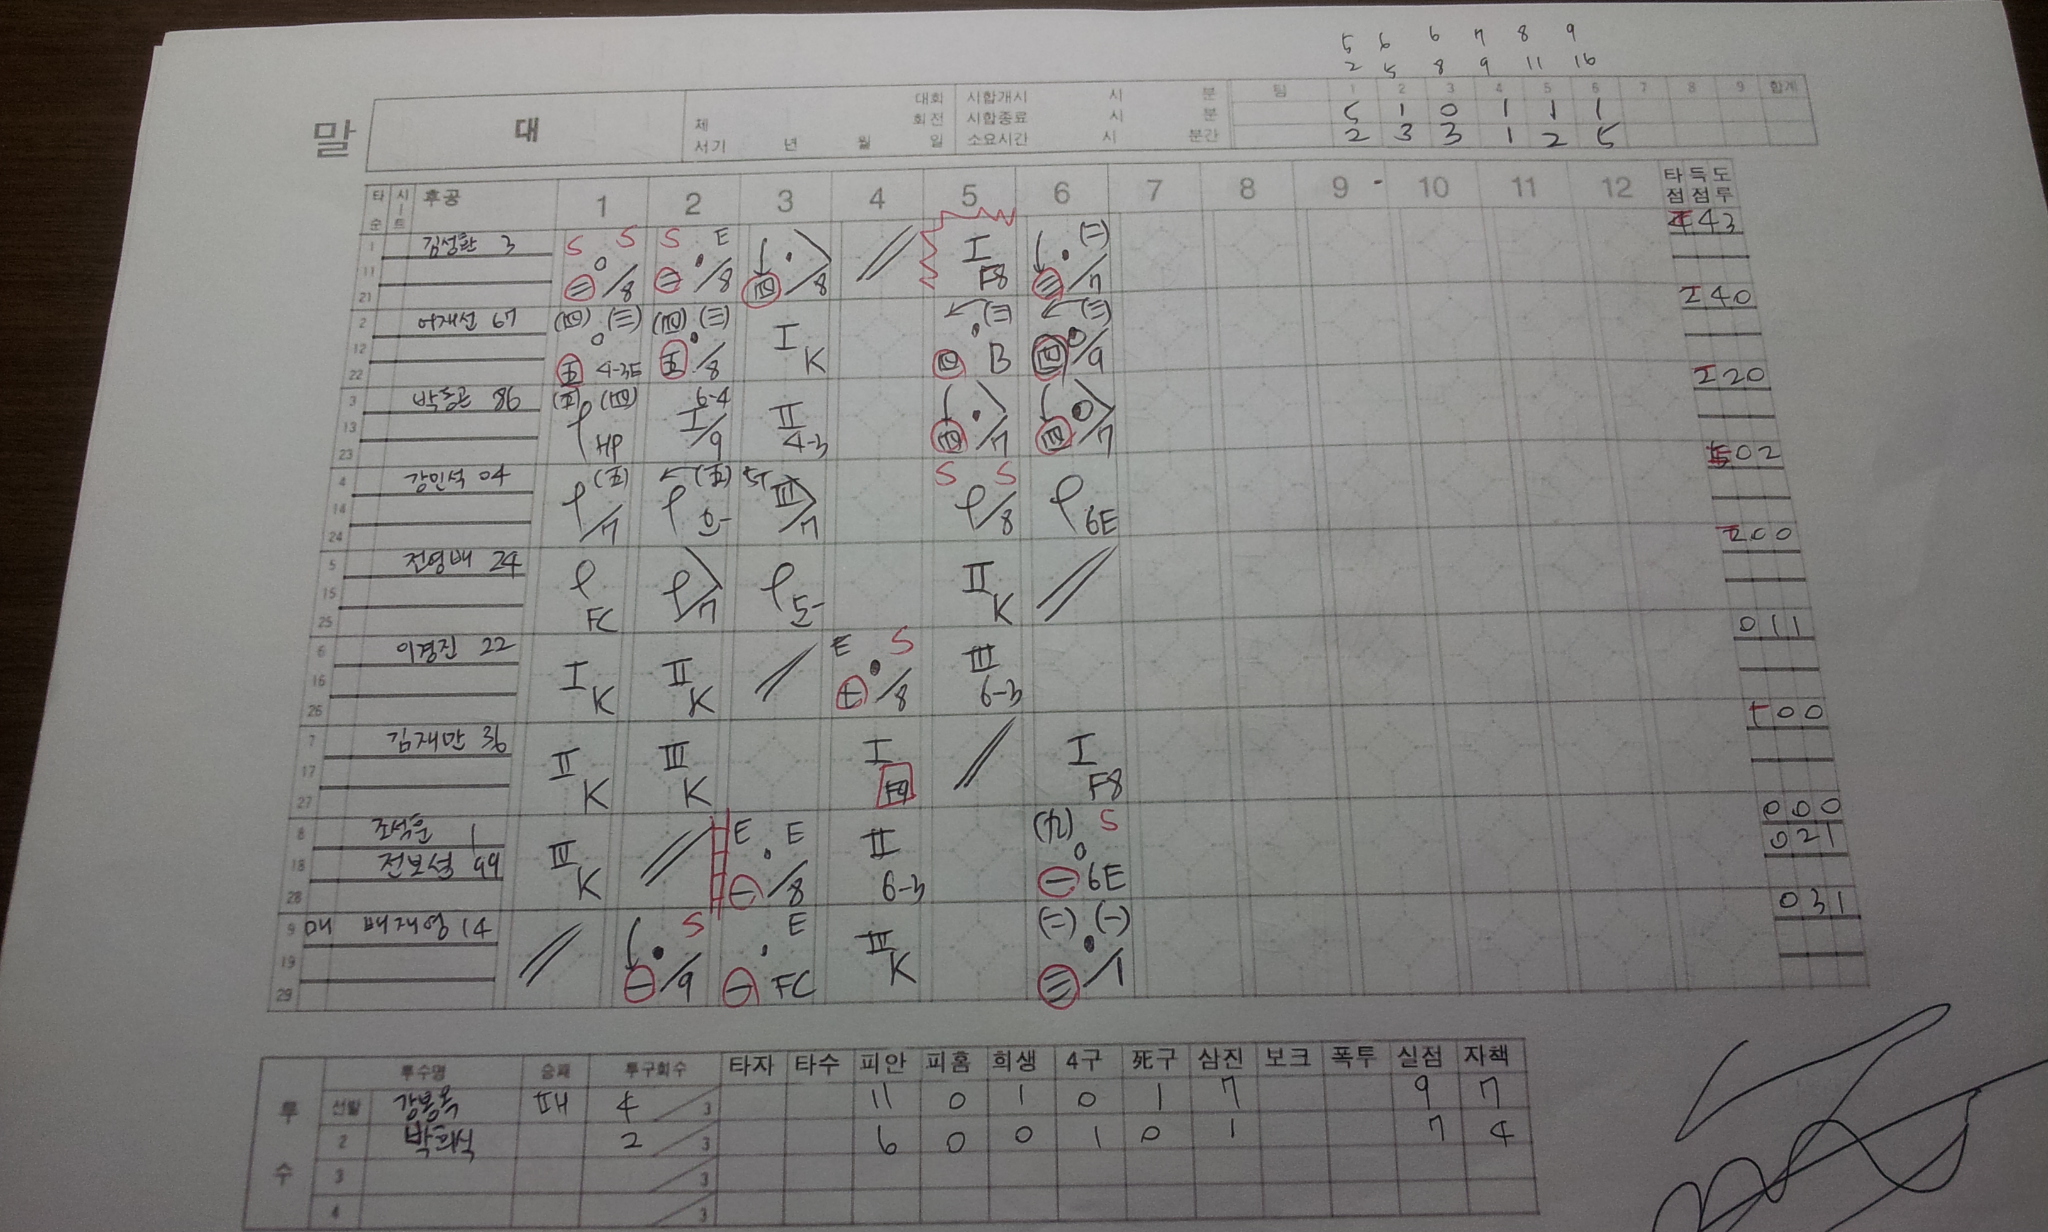 5 6 6 7 8 9
2 5 8 9 11 16
말
대
대회
체 회전
서기 년 월 일
시합개시 시 분
시합종료 시 분
소요시간 시 분간
팀 1 2 3 4 5 6 7 8 9 합계
5 1 0 1 1 1
2 3 3 1 2 5
타순 시트 후공 1 2 3 4 5 6 7 8 9 - 10 11 12 타점 득점 도루
1 11 21 김성환 3
S S 二 /8
S E 二 /8
四 /8
I F8
(二) 三 /7
4 4 3
2 12 22 67
(四) (三) 五 4-3E
(四) (三) 五 /8
I K
(三) 四 B
(三) 四 /9
2 4 0
3 13 23 86
(五) (四) HP
6-4 I /9
II 4-3
四 /7
四 /7
2 2 0
4 14 24 강인석 04
(五) /7
(五)
III /7
S S /8
6E
0 2
5 15 25 전영배 24
FC
/7
II K
2 0 0
6 16 26 이경진 22
I K
II K
E S 七 /8
III 6-3
0 1 1
7 17 27 김재만 36
II K
III K
I F9
I F8
0 0
8 18 28 조석훈 1
전보성 99
III K
E E 一 /8
II 6-3
(九) S 一 6E
0 0 0
0 2 1
9 19 29 배재영 14
S 一 /9
E 一 FC
III K
(二) (一) 三 /1
0 3 1
투수 투수명 승패 투구회수 타자 타수 피안 피홈 희생 4구 死구 삼진 보크 폭투 실점 자책
선발 강봉옥 패 4 /3 11 0 1 0 1 7 9 7
2 박희식 2 /3 6 0 0 1 0 1 7 4
3 /3
4 /3